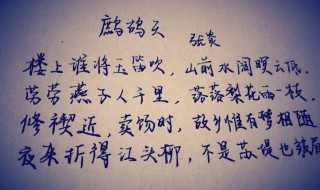 鹧鸪天
张炎
楼上谁将玉笛吹,山前水阔暝云低。
劳劳燕子人千里,落落梨花雨一枝。
修禊近,卖饧时,故乡惟有梦相随
夜来折得江头柳,不是苏堤也皱眉